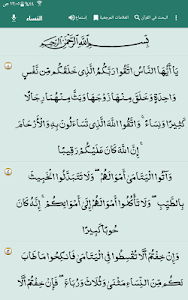 النساء
البحث في القرآن
العلامات المرجعية
إستماع
بِسْمِ اللَّهِ الرَّحْمَٰنِ الرَّحِيمِ
يَا أَيُّهَا النَّاسُ اتَّقُوا رَبَّكُمُ الَّذِي خَلَقَكُم مِّن نَّفْسٍ
وَاحِدَةٍ وَخَلَقَ مِنْهَا زَوْجَهَا وَبَثَّ مِنْهُمَا رِجَالًا
كَثِيرًا وَنِسَاءً ۚ وَاتَّقُوا اللَّهَ الَّذِي تَسَاءَلُونَ بِهِ وَالْأَرْحَامَ
ۚ إِنَّ اللَّهَ كَانَ عَلَيْكُمْ رَقِيبًا
وَآتُوا الْيَتَامَىٰ أَمْوَالَهُمْ ۖ وَلَا تَتَبَدَّلُوا الْخَبِيثَ
بِالطَّيِّبِ ۖ وَلَا تَأْكُلُوا أَمْوَالَهُمْ إِلَىٰ أَمْوَالِكُمْ ۚ إِنَّهُ كَانَ
حُوبًا كَبِيرًا
وَإِنْ خِفْتُمْ أَلَّا تُقْسِطُوا فِي الْيَتَامَىٰ فَانكِحُوا مَا طَابَ
لَكُم مِّنَ النِّسَاءِ مَثْنَىٰ وَثُلَاثَ وَرُبَاعَ ۖ فَإِنْ خِفْتُمْ أَلَّا